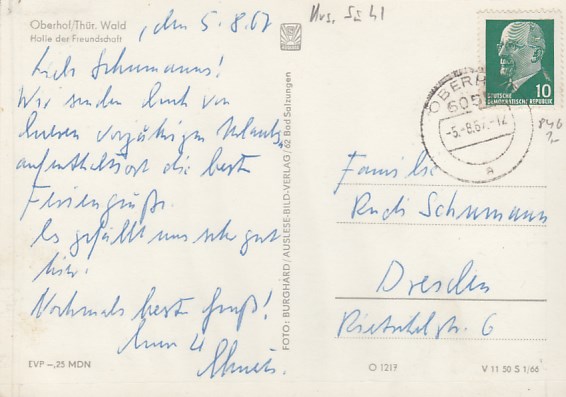 Oberhof/Thür. Wald
Halle der Freundschaft
, den 5.8.67
Lieb Schumanns!
Wir senden Euch von
Eurem vorjährigen Urlaubs-
aufenthaltsort die besten
Feriengrüße.
Es gefällt uns sehr gut
hier.
Nochmals beste Grüße!
EVP –,25 MDN
FOTO: BURGHARD/AUSLESE-BILD-VERLAG/62 Bad Salzungen
10
DEUTSCHE
DEMOKRATISCHE REPUBLIK
OBERH
605
-5.-8.67.-12
a
Familie
Rudi Schumann
Dresden
Rietschelstr. 6
O 1217
V 11 50 S 1/66